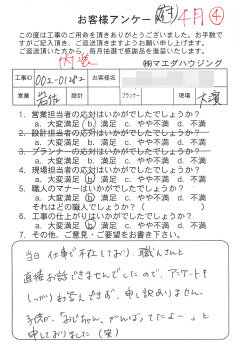 お客様アンケート
4月④
この度は工事のご用命を頂きありがとうございました。お手数で
すがご記入頂き、ご返送頂きますようお願い申し上げます。
ご返送頂いた方から、毎月抽選で感謝品を進呈いたします。
内装
㈱マエダハウジング
工事ID 002-01282 お客様名
営業 岩佐 設計 プランナー 現場 大濱
1. 営業担当者の応対はいかがでしたでしょうか?
a. 大変満足 b. 満足 c. やや不満 d. 不満
2. 設計担当者の応対はいかがでしたでしょうか?
a. 大変満足 b. 満足 c. やや不満 d. 不満
3. プランナーの応対はいかがでしたでしょうか?
a. 大変満足 b. 満足 c. やや不満 d. 不満
4. 現場担当者の応対はいかがでしたでしょうか?
a. 大変満足 b. 満足 c. やや不満 d. 不満
5. 職人のマナーはいかがでしたでしょうか?
a. 大変満足 b. 満足 c. やや不満 d. 不満
それはどの職人でしょうか?( )
6. 工事の仕上がりはいかがでしたでしょうか?
a. 大変満足 b. 満足 c. やや不満 d. 不満
7. その他、ご意見・ご要望をお書き下さい。
当日 仕事で不在しており、職人さんと
直接お話できませんでしたので、アンケートを
しっかりお答えできず、申し訳ありません。
子供が、「おじちゃん、がんばってたよ〜」と
申しておりました(笑)